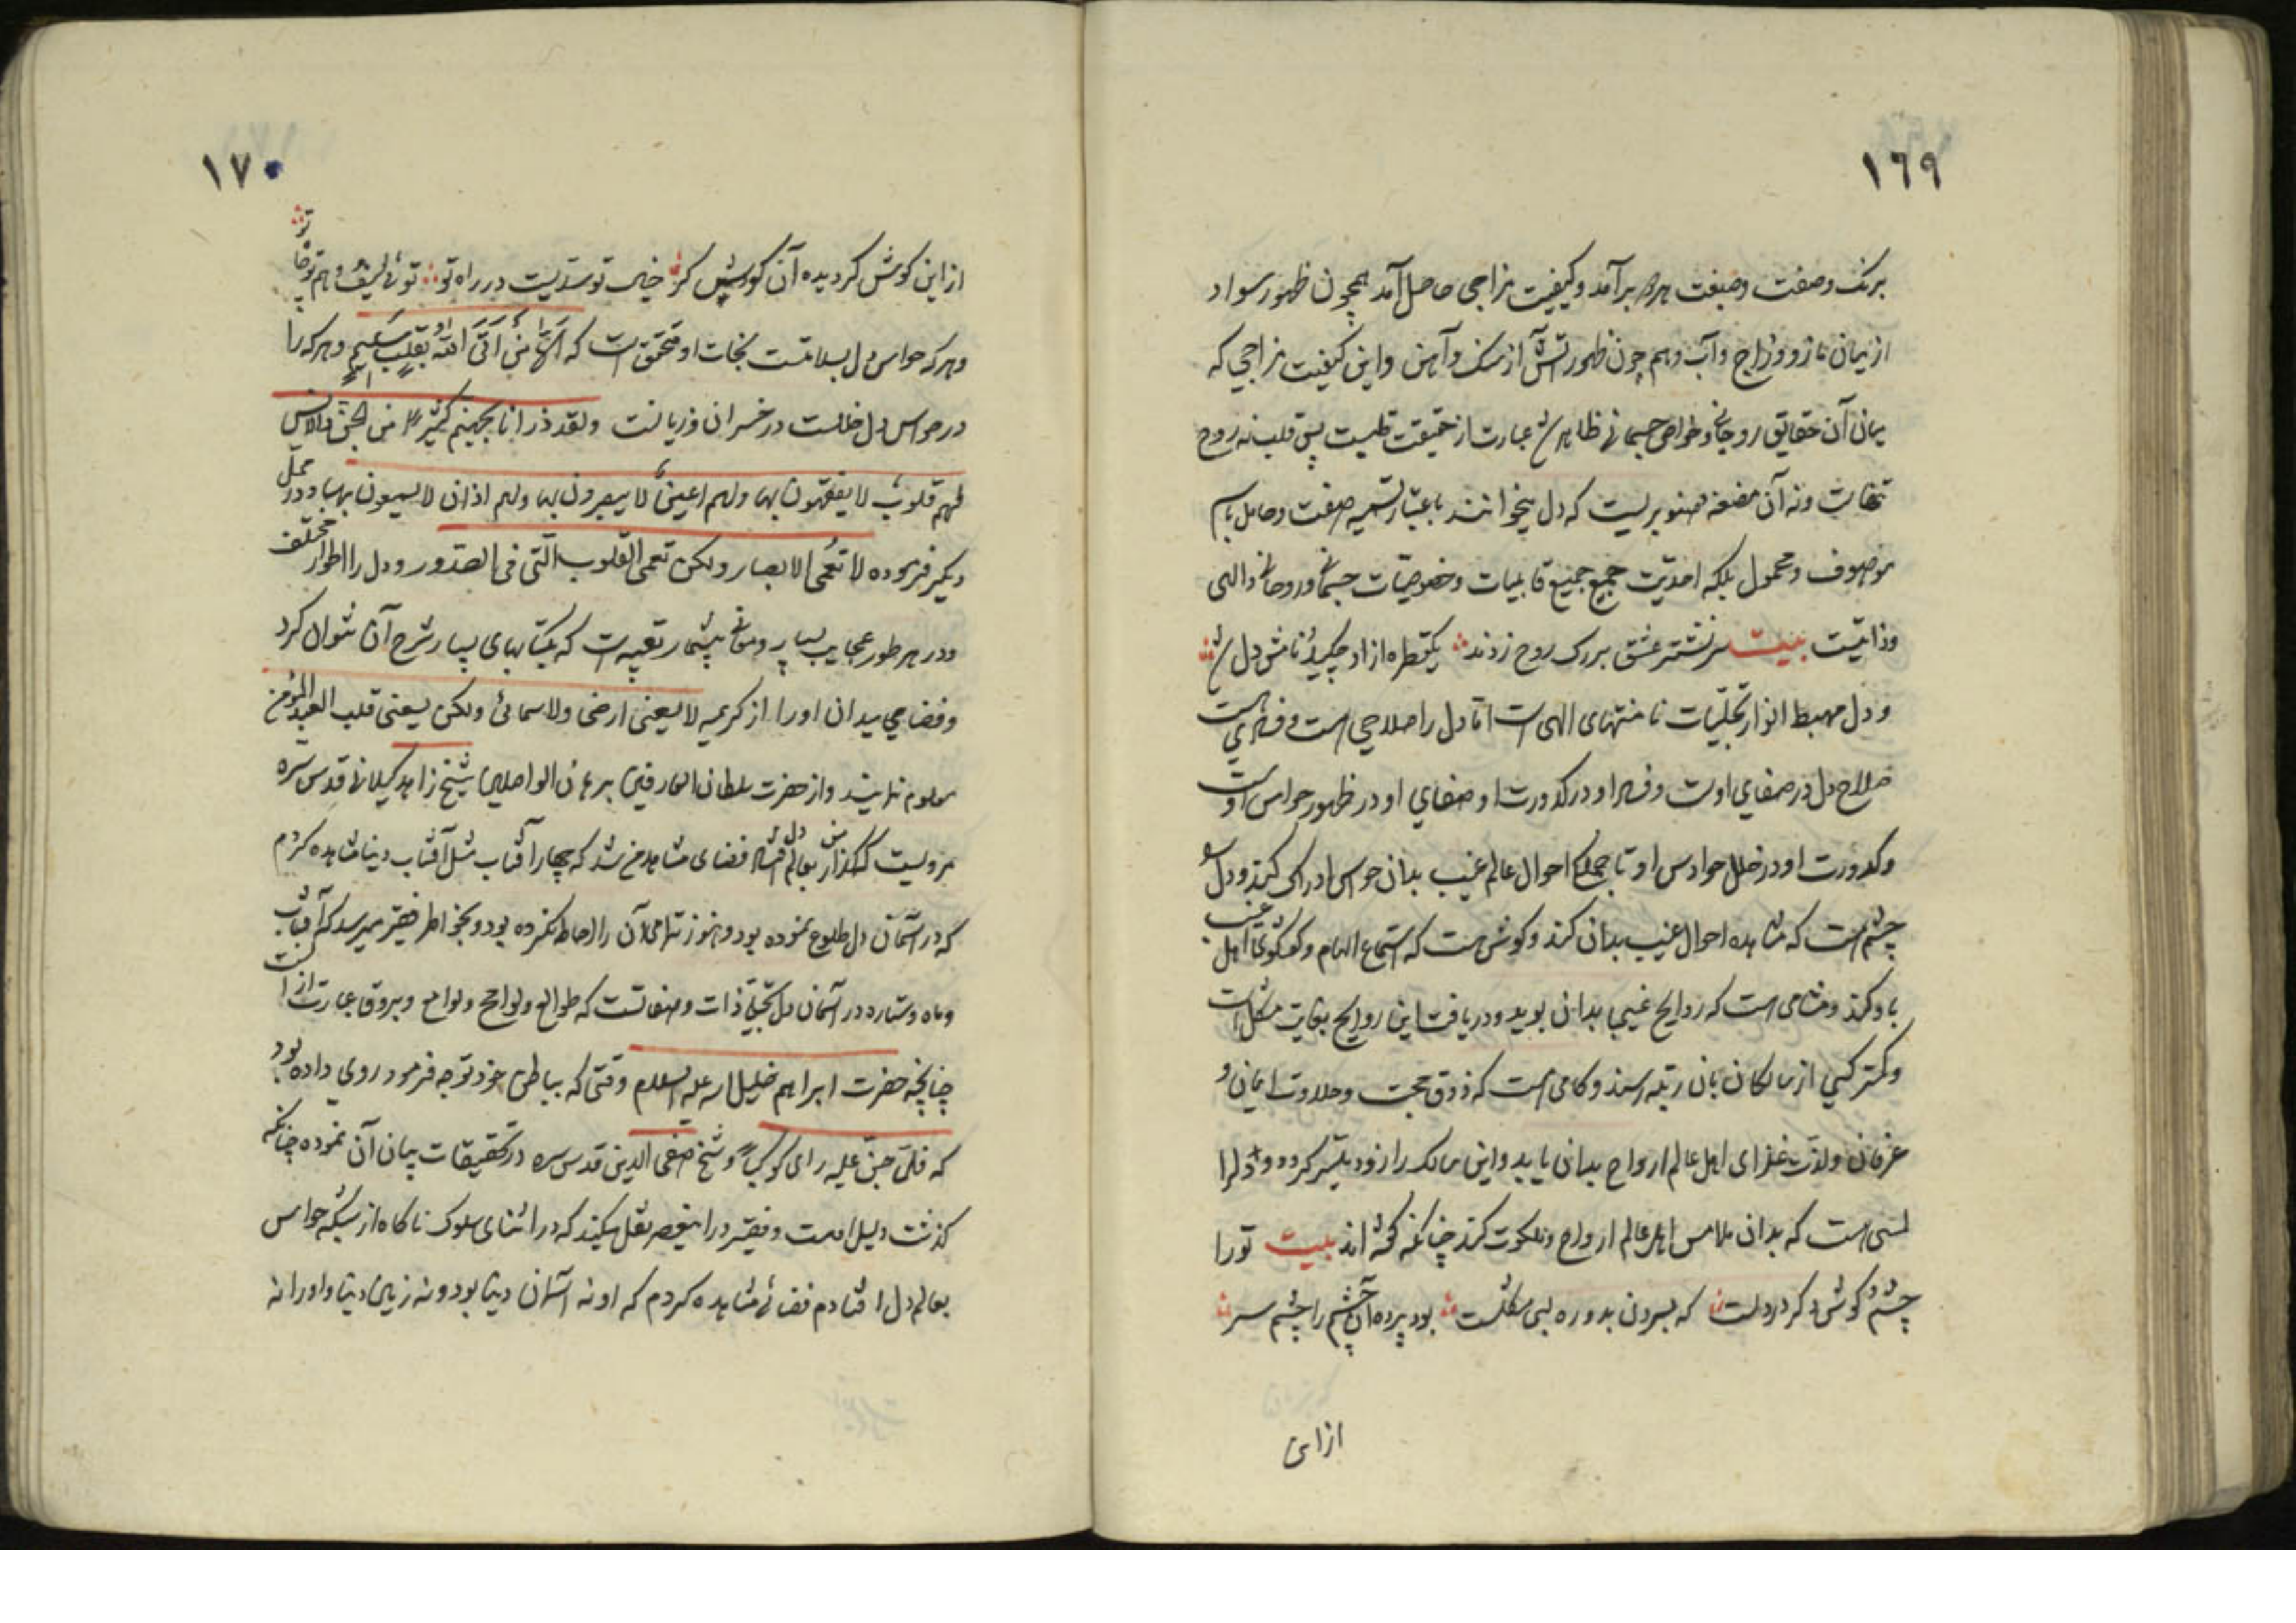 ١٦٩
برنک و صفت و صبغت همه برآمد و کیفیت مزاجی حاصل آمد همچون ظهور سواد
از میان مازو و زاج و آب و همچون ظهور آتش از سنک و آهن و این کیفیت مزاجی که
میان آن حقایق روحانی و خواص جسمانی ظاهر شد عبارت از حقیقت قلبست پس قلب نه روح
تنهاست و نه آن مضغه صنوبریست که دل میخوانند باعتبار تسمیه صفت و حامل باسم
موصوف و محمول بلکه احدیت جمیع جمیع قابلیات و خصوصیات جسمانی و روحانی و الهی
و ذاتیت بیت سر نشتر عشق بر رک روح زدند یکقطره ازاو چکید نامش دل شد
و دل مهبط انوار تجلیات نامنتهای الهی است اما دل را صلاحی است و فسادی است
صلاح دل در صفای اوست و فساد او در کدورت او صفای او در ظهور حواس اوست
و کدورت او در خلل حواس او تا جمله احوال عالم غیب بدان حواس ادراک کند و دل
چشم است که مشاهده احوال غیب بدان کند و کوش است که استماع الهام و کفتکوی اهل غیب
باو کند و مشامی است که روایح غیبی بدان بوید و دریافت این روایح بغایت مشکل است
و کمتر کسی از سالکان بآن رتبه رسند و کامی است که ذوق محبت و حلاوت ایمان و
عرفان و لذت غذای اهل عالم ارواح بدان یابد و این سالک را زود میسر کردد و دلرا
لمسی است که بدان ملامس اهل عالم ارواح و ملکوت کند چنانکه گفته اند بیت تو را
چشم و کوش دکر در دلست که بردن بدو ره بسی مشکلست بود پرده آن چشم را چشم سر
از این
١٧٠
از این کوش کردیده آن کوش کر خیال تو سدیست در راه تو توئی و هم
و هر که حواس دل بسلامتست نجات او متحقق است که الا من اتی الله بقلب سلیم و هر که را
در حواس دل خللست در خسران و زیانست و لقد ذرانا لجهنم کثیرا من الجن والانس
لهم قلوب لا یفقهون بها و لهم اعین لا یبصرون بها و لهم اذان لا یسمعون بها و در محل
دیکر فرموده لا تعمی الابصار ولکن تعمی القلوب التی فی الصدور و دل را اطوار مختلف
و در هر طور عجایب بسیار و معانی بیشمار تعبیه است که بکتابهای بسیار شرح آن نتوان کرد
و فضای میدان او را از کریمه لا یسعنی ارضی ولا سمائی ولکن یسعنی قلب العبد المؤمن
معلوم نمایند و از حضرت سلطان العارفین برهان الواصلین شیخ زاهد کیلانی قدس سره
مرویست که کذار من بعالم دل افتاد فضای مشاهدم شد که چهار آفتاب مثل آفتاب دنیا مشاهده کردم
که در آسمان دل طلوع نموده بود و هنوز تمامی آن را احاطه نکرده بود و بخاطر فقیر میرسد که آفتاب
و ماه و ستاره در آسمان دل تجلی ذات و صفاتست که طوالع و لوایح و لوامع و بروق عبارت از آنست
چنانچه حضرت ابراهیم خلیل الله علیه السلام وقتی که بباطن خود توجه فرمود روی داده بود
که فلما جن علیه رای کوکبا و شیخ صفی الدین قدس سره در تحقیقات بیان آن نموده چنانکه
کذشت دلیل است و فقیر در این عصر نقل میکند که در اثنای سلوک ناکاه از شبکه حواس
بعالم دل افتادم فضائی مشاهده کردم که او نه آسمان دنیا بود و نه زمین دنیا و او را نه